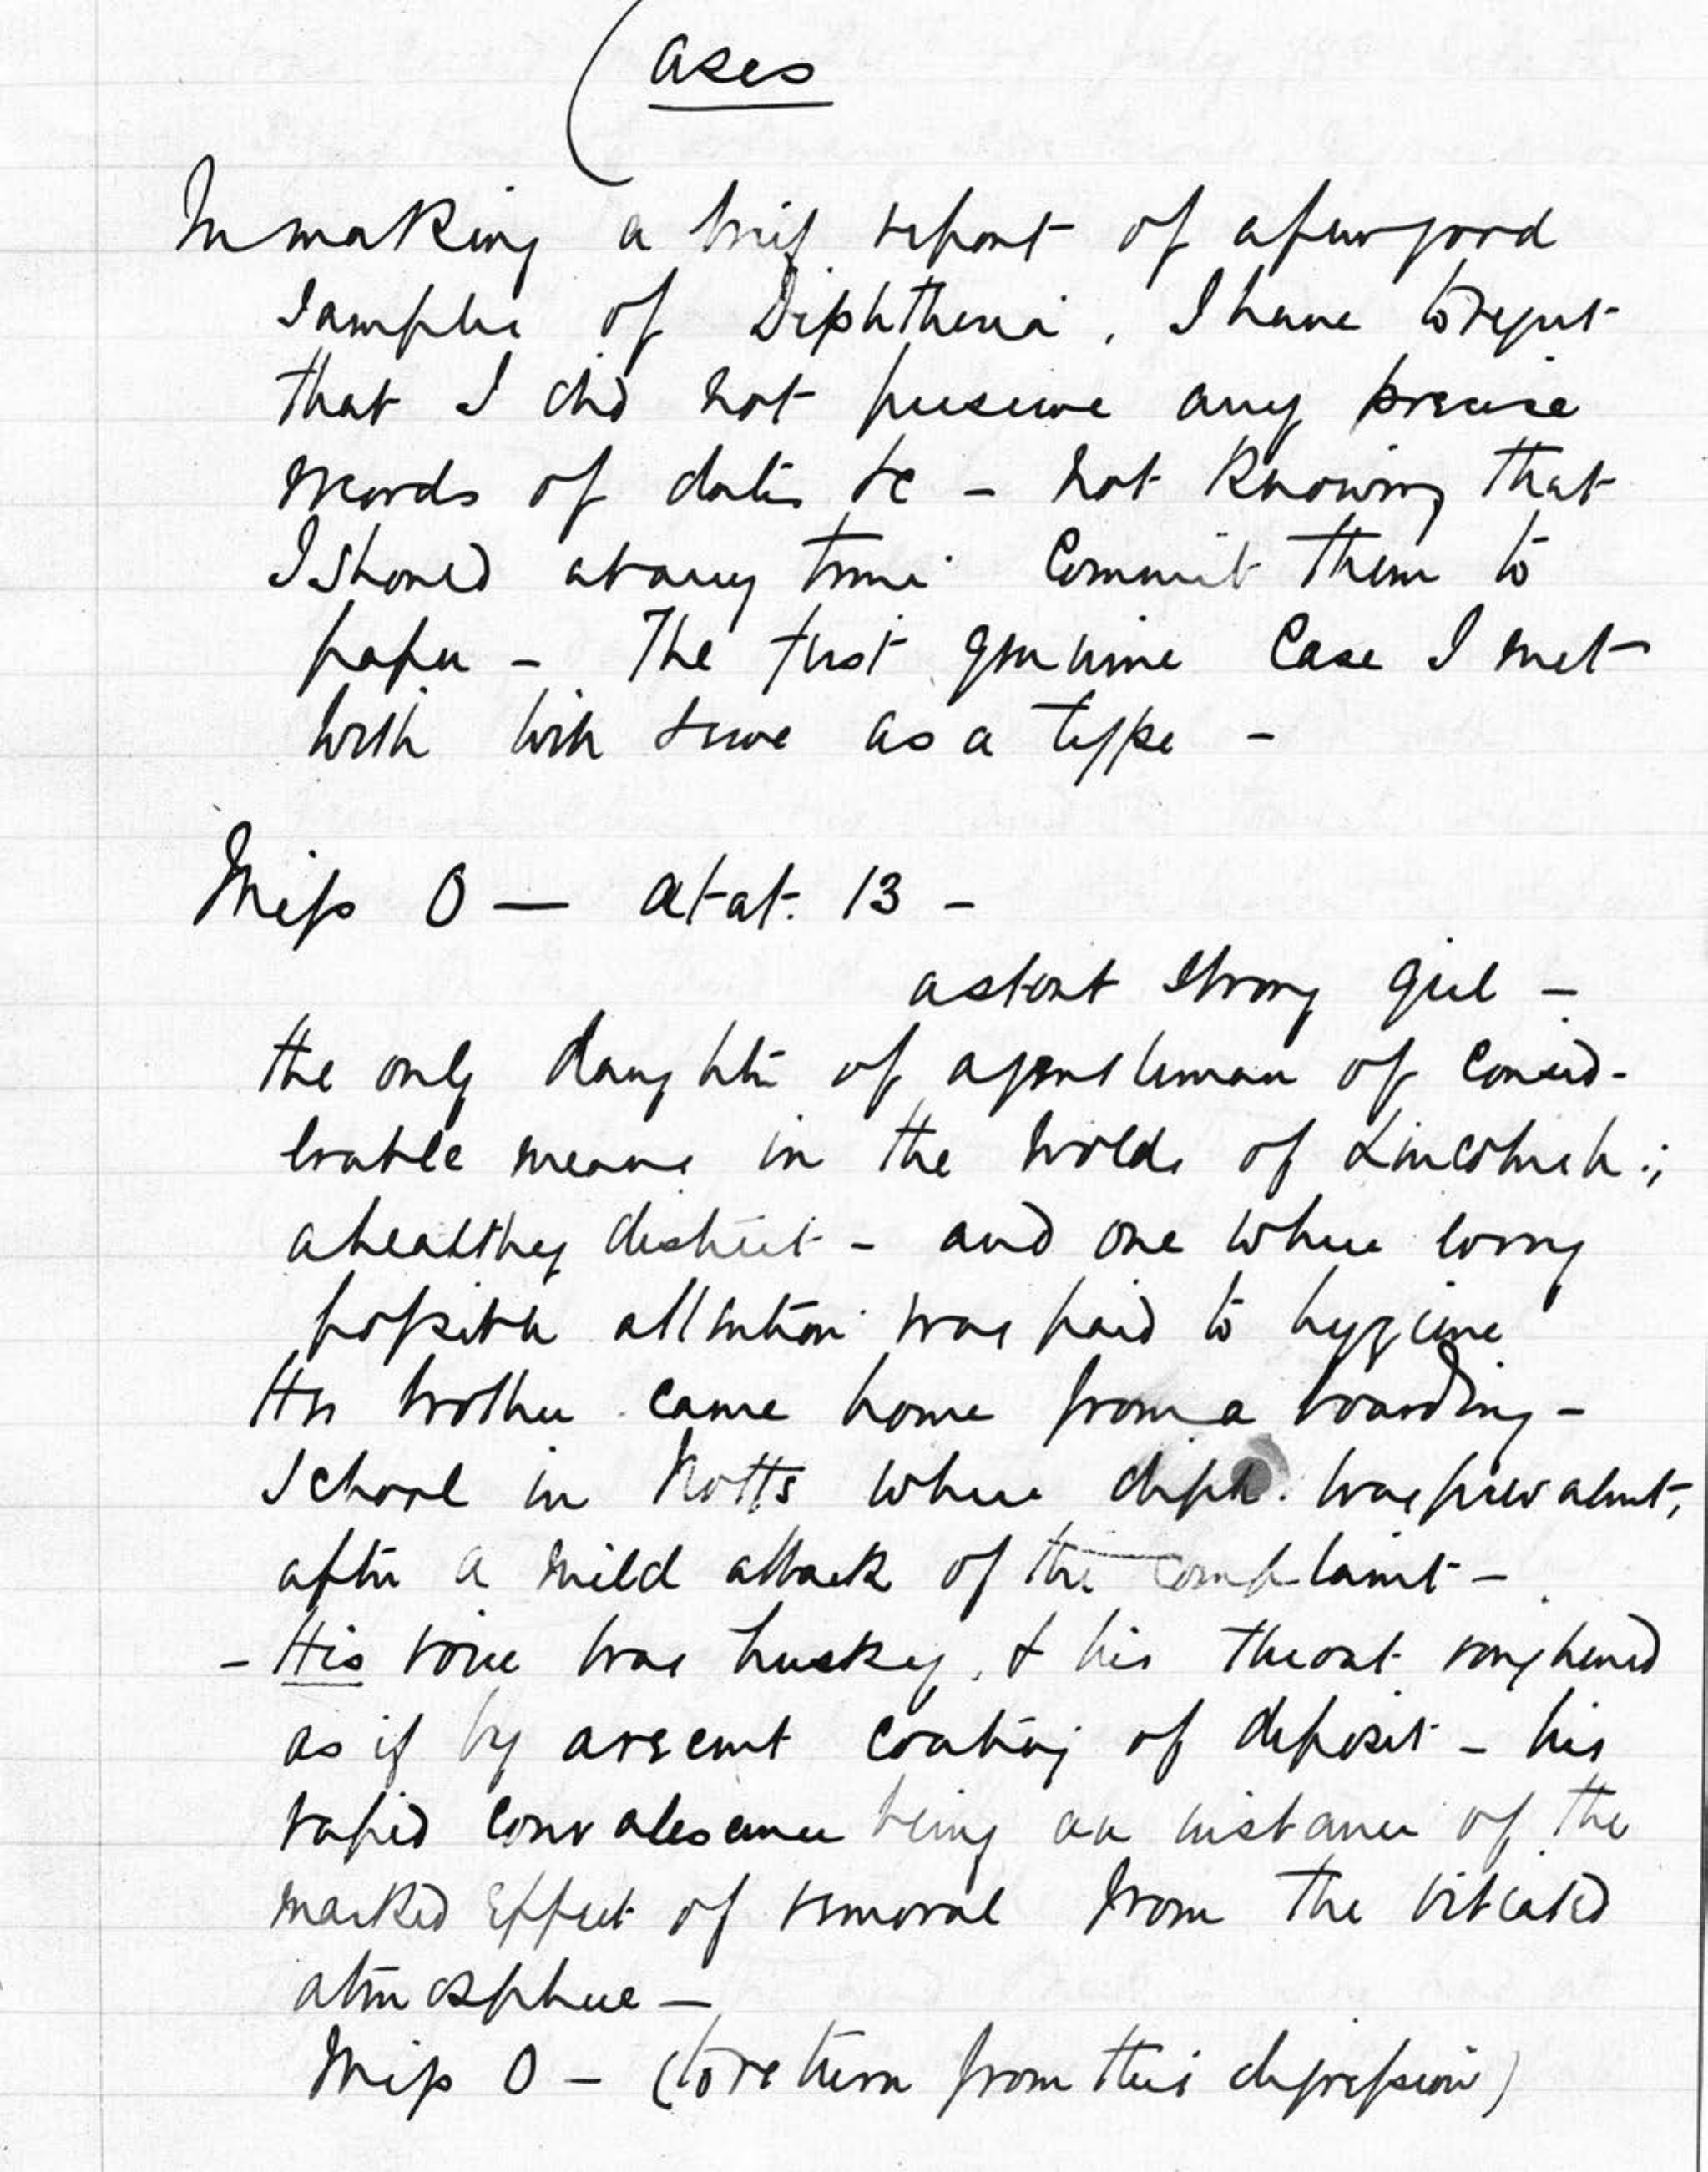 Cases
In making a brief report of a few good
samples of Diphtheria, I have to regret
that I did not preserve any precise
records of dates &c - not knowing that
I should at any time commit them to
paper - The first genuine case I met
with will serve as a type -
Miss O — aetat. 13 -
a stout strong girl -
the only daughter of a gentleman of consid-
erable means in the wolds of Lincolnsh:;
a healthy district - and one where every
possible attention was paid to hygiene
Her brother came home from a boarding-
school in Notts where diph. was prevalent,
after a mild attack of the complaint -
- His voice was husky, & his throat roughened
as if by a recent coating of deposit - his
rapid convalescence being an instance of the
marked effect of removal from the vitiated
atmosphere —
Miss O - (to return from this digression)